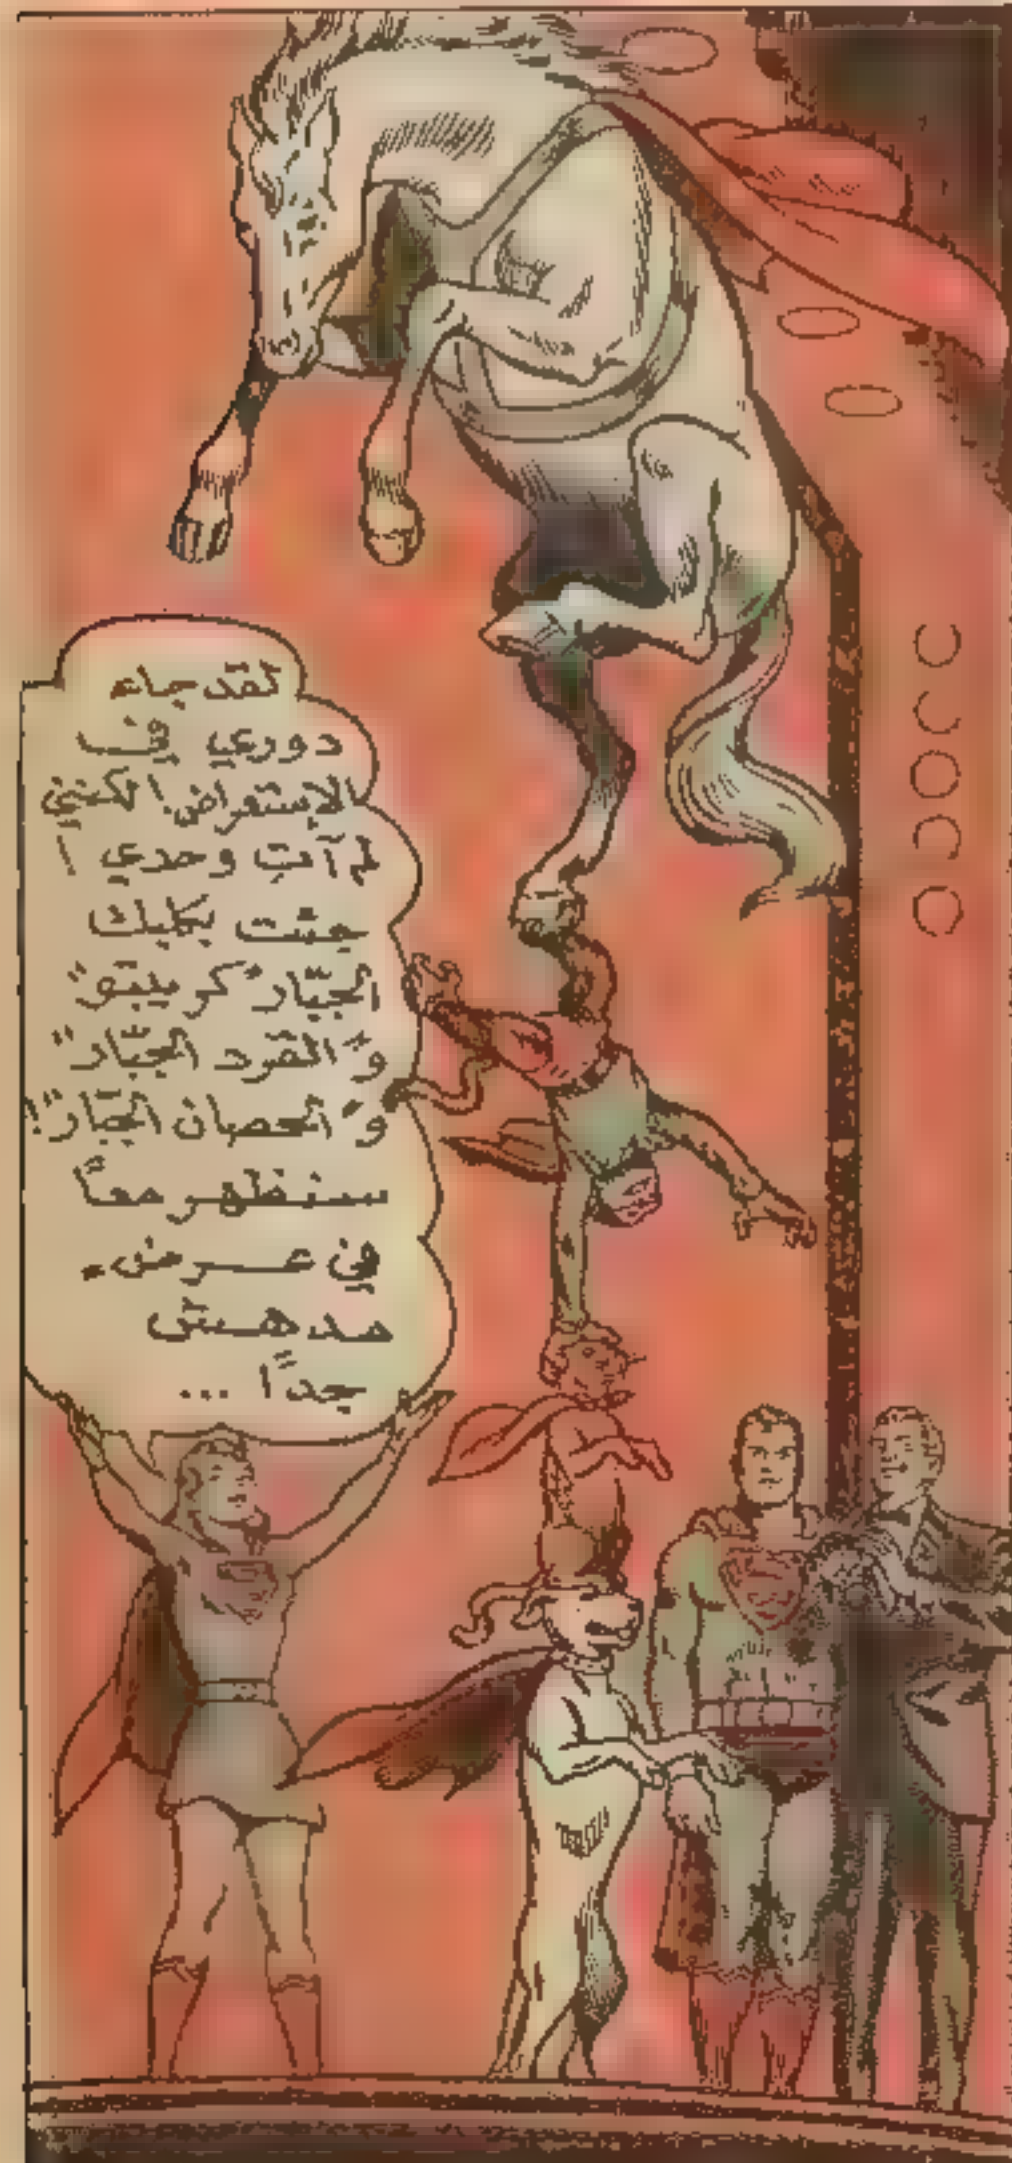 لقد جاء
دوري في
الإستعراض! لكنني
لم آت وحدي!
جئت بكلبك
الجبّار "كريبتو"
و "القرد الجبّار"
و "الحصان الجبّار"!
سنظهر معاً
في عرض
مدهش
جداً ...